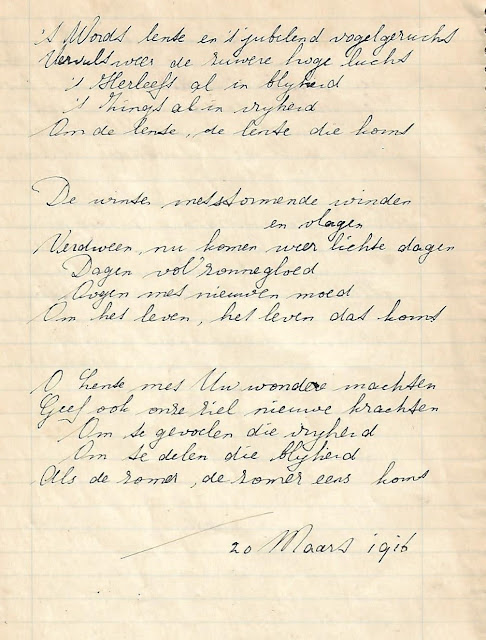 't Wordt lente en 't jubelend vogelgerucht
Vervult weer de zuivere hoge lucht
't Herleeft al in blijheid
't Zingt al in vrijheid
Om de lente, de lente die komt
De winter met stormende winden
en vlagen
Verdween, nu komen weer lichte dagen
Dagen vol zonnegloed
Ogen met nieuwen moed
Om het leven, het leven dat komt
O Lente met Uw wondere machten
Geef ook onze ziel nieuwe krachten
Om te gevoelen die vrijheid
Om te delen die blijheid
Als de zomer, de zomer eens komt
20 Maart 1916